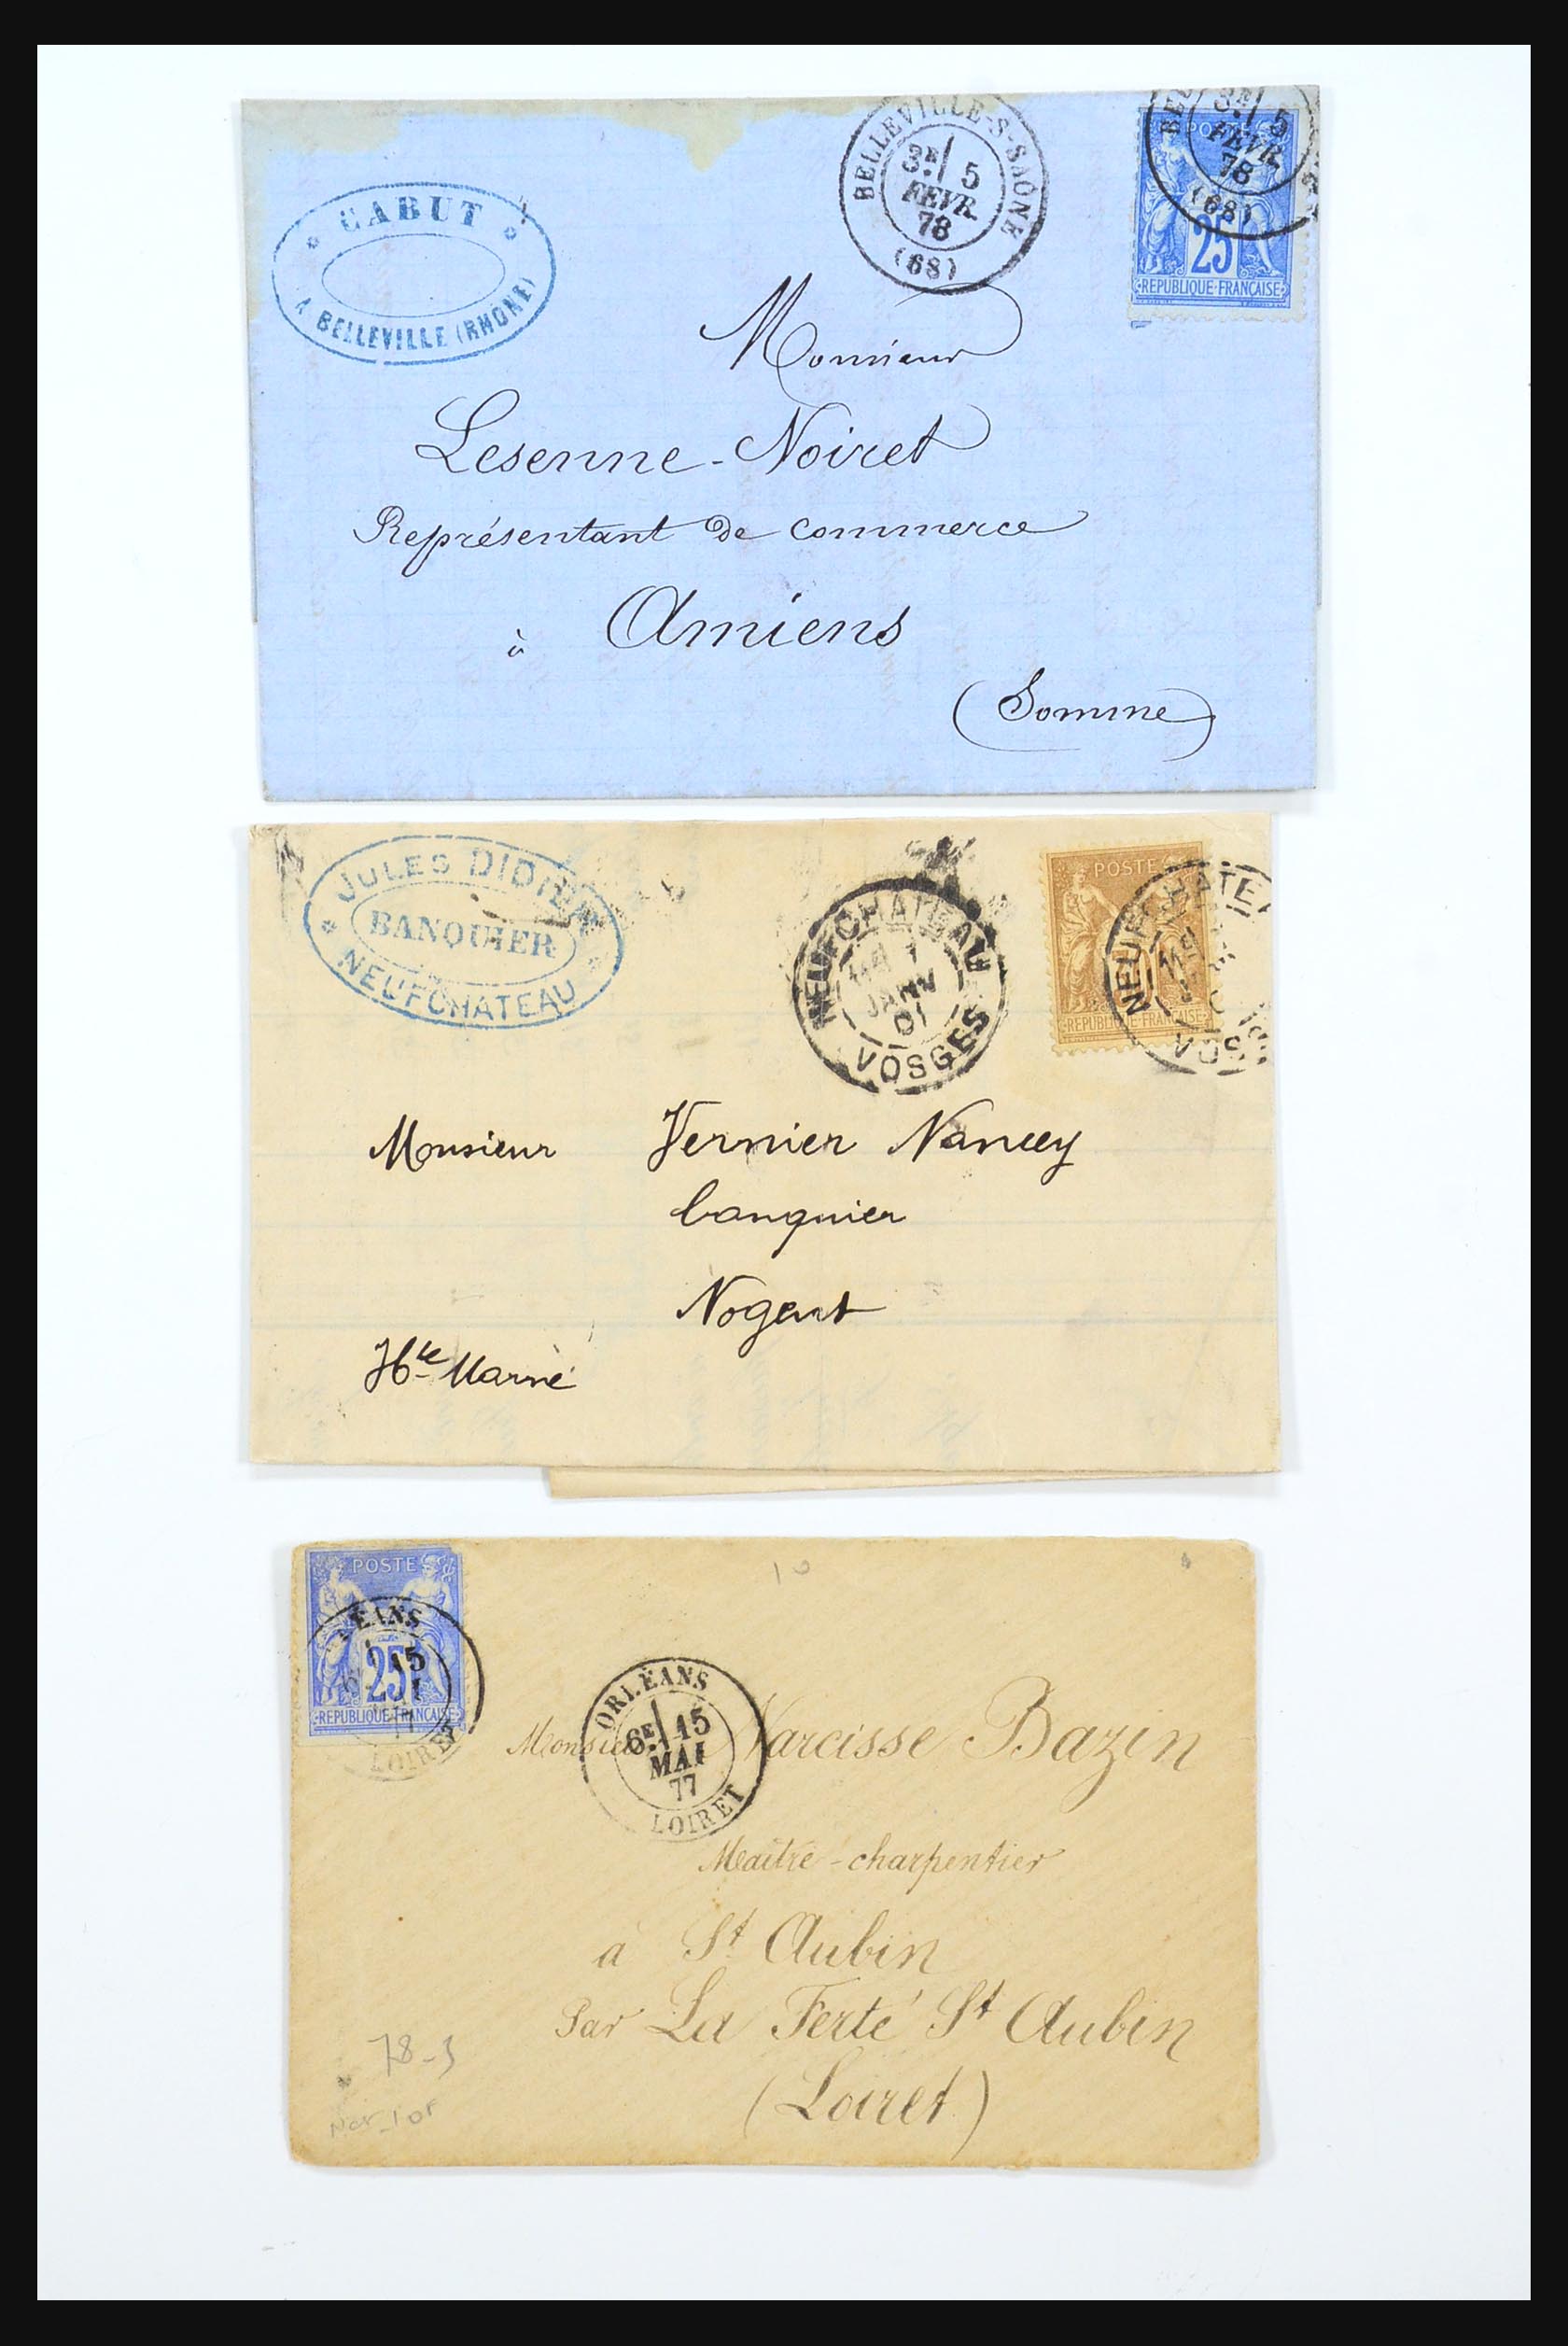 CABUT
A BELLEVILLE (RHONE)
BELLEVILLE-S-SAÔNE
3E 5
FEVR.
78
(68)
3E 5
FEVR.
78
(68)
POSTE
25
REPUBLIQUE FRANÇAISE
Monsieur
Lesenne-Noiret
Représentant de commerce
à Amiens
(Somme)
JULES DIDIER
BANQUIER
NEUFCHATEAU
NEUFCHATEAU
JANV
01
VOSGES
POSTE
REPUBLIQUE FRANÇAISE
Monsieur Vernier Nancey
banquier
Nogent
Hte Marne
10
POSTE
25
REPUBLIQUE FRANÇAISE
15
LOIRET
ORLÉANS
6E 15
MAI
77
LOIRET
Monsieur Narcisse Bazin
Maître-charpentier
à St Aubin
Par La Ferté St Aubin
(Loiret)
78-3